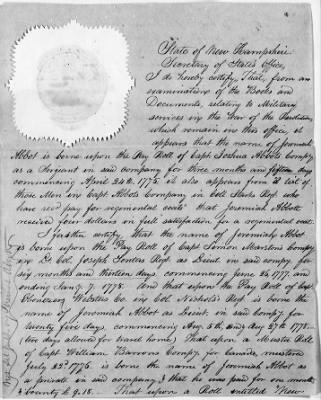 State of New Hampshire
Secretary of State's Office,
I do hereby certify, That, from an
examination of the Books and
Documents, relating to Military
services in the War of the Revolution
which remain in this office, it
appears that the name of Jeremiah
Abbot is borne upon the Pay Roll of Capt Joshua Abbots Company
as a Sergeant in said Company for three months and fifteen days
commencing April 24th 1775. It also appears from "A List of
those Men in Capt Abbots Company in Col Starks Regt who
have recd pay for regimental coats" that Jeremiah Abbott
receivd four dollars in full satisfaction for a regimental coat.
I further certify, that the name of Jeremiah Abbot
is borne upon the Pay Roll of Capt Simon Marstons Compy
in Col Joseph Senters Regt as Lieut in said compy for
six months and thirteen days commencing June 26, 1777. and
ending Jany 7. 1778. And that upon the Pay Roll of Capt
Ebenezer Websters Co. in Col Nichols's Regt is borne the
name of Jeremiah Abbot as Lieut. in said Compy. for
twenty five days, commencing Aug. 5th, endg Aug 27th 1778.
(two days allowed for travel home) That upon a Muster Roll
of Capt William Barrons Compy. for Canada, mustered
July 22d 1776. is borne the name of Jeremiah Abbot as
a private in said company & that he was paid for one month
& bounty £9.18. That upon a Roll entitled "New